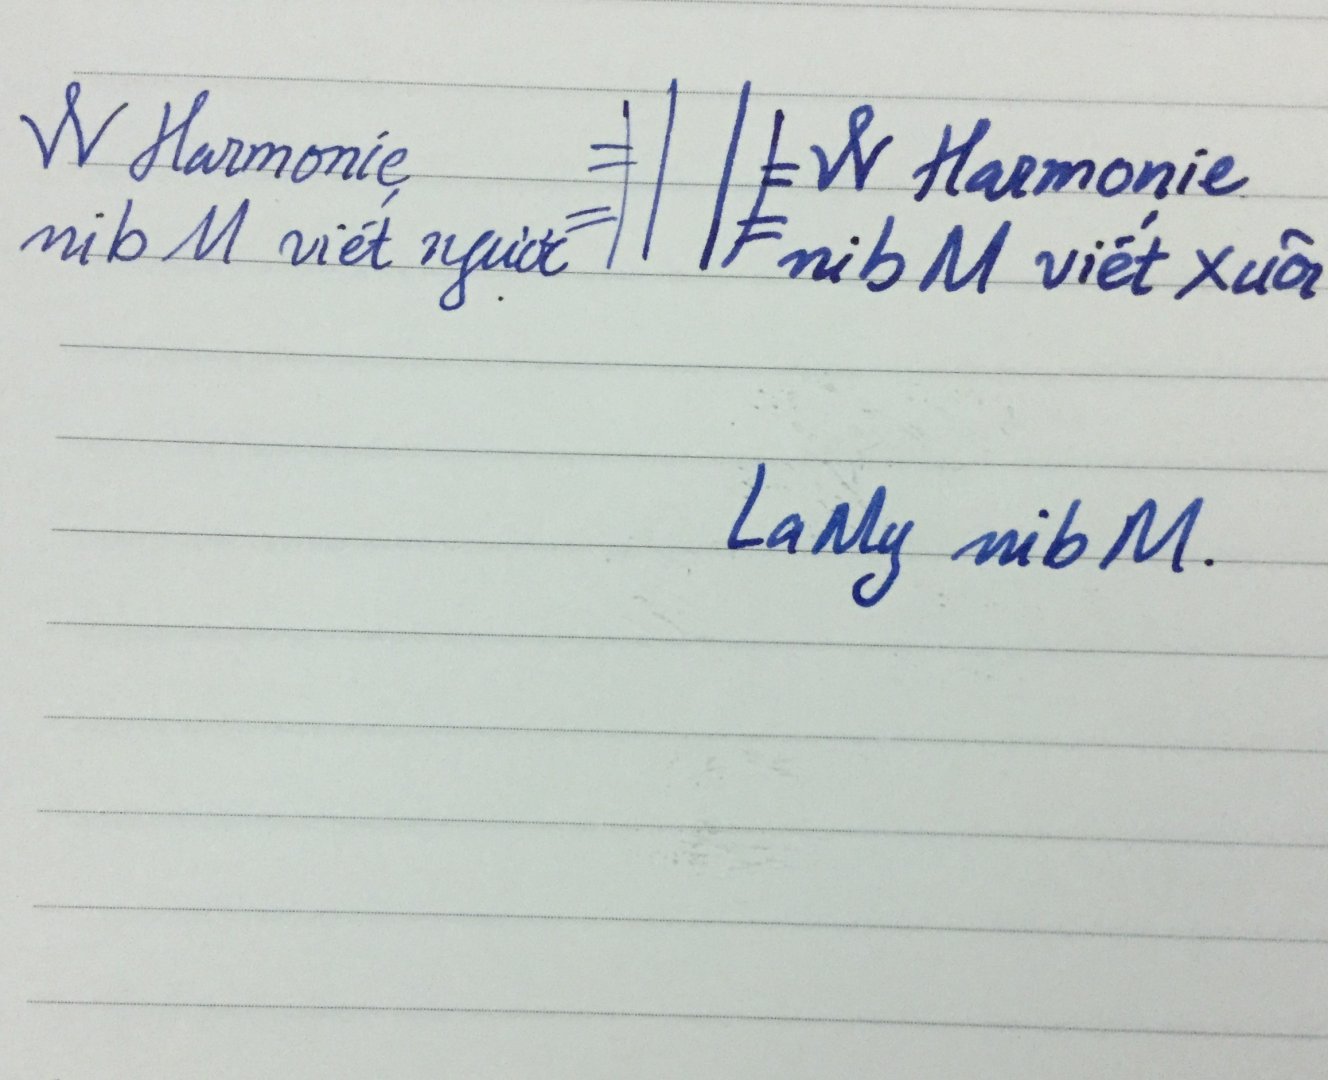 W Harmonie
nib M viết ngược
W Harmonie
nib M viết xuôi
LaMy nib M.